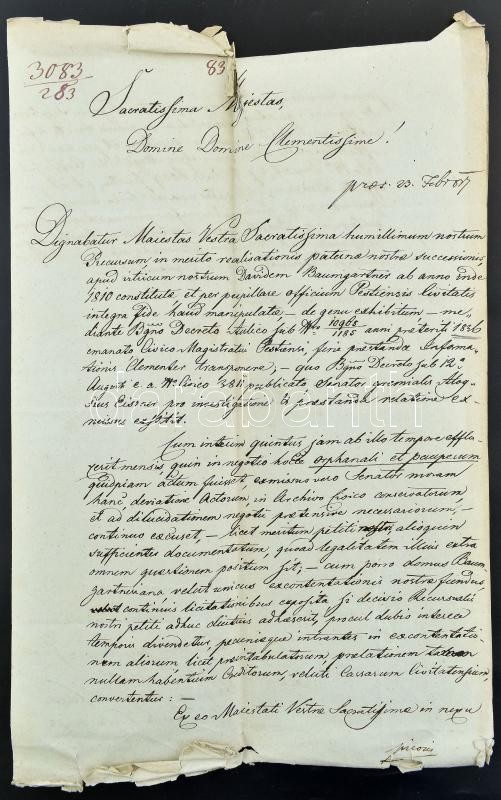 3083
283
83
Sacratissima Maiestas,
Domine Domine Clementissime!
praes. 23. Febr 837
Dignabatur Maiestas Vestra Sacratissima humillimum nostrum
Recursum in merito realisationis paternae nostrae successionis,
apud vitricum nostrum Davidem Baumgartner ab anno inde
1810 constitutae et per pupillare officium Pestiensis Civitatis
integra fide haud manipulatae, – de genu exhibitum – me-
diante Bgno Decreto Aulico sub Nro anni praeteriti 1836
emanato Civico Magistratui Pestiensi, fine praestandae Informa-
tionis Clementer transponere, – quo Bgno Decreto sub 12a
Augusti e. a. No Civico publicato Senator
pro investigatione et praestanda relatione ex-
missus extitit.
Cum interim quintus jam ab illo tempore efflu-
xerit mensis, quin in negotio hocce orphanali et pauperum
quidpiam actum fuisset, exmisso vero Senatore moram
hanc deviatione Actorum in Archivo fisico conservatorum
et ad dilucidationem negotii praetensive necessariorum, –
continuo excuset, – licet meritum petiti alioquin
sufficienter documentatum, quoad legalitatem illius extra
omnem quaestionem positum sit; – cum porro domus Baum-
gartneriana velut unicus excontentationis nostrae fundus
continuis licitationibus exposita si decisio Recursualis
nostri petiti adhuc diutius adhaeserit, procul dubio interea
temporis divendetur, pecuniaeque intrantes in excontentatio-
nem aliorum licet praeintabulatorum praelationem tamen
nullam habentium Creditorum, veluti Cassarum Civitatensium,
convertentur: –
Ex eo Maiestati Vestrae Sacratissimae in nexu
prioris